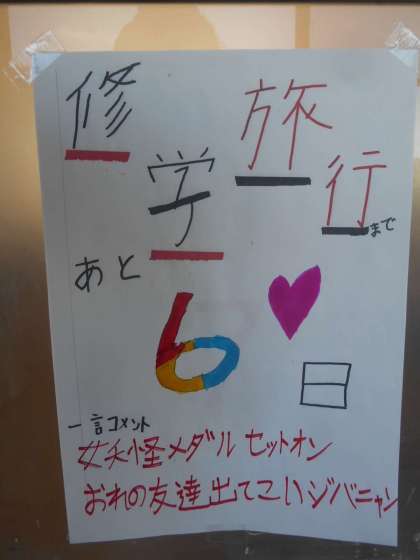 修学旅行まで
あと6日
一言コメント
妖怪メダルセットオン
おれの友達出てこいジバニャン